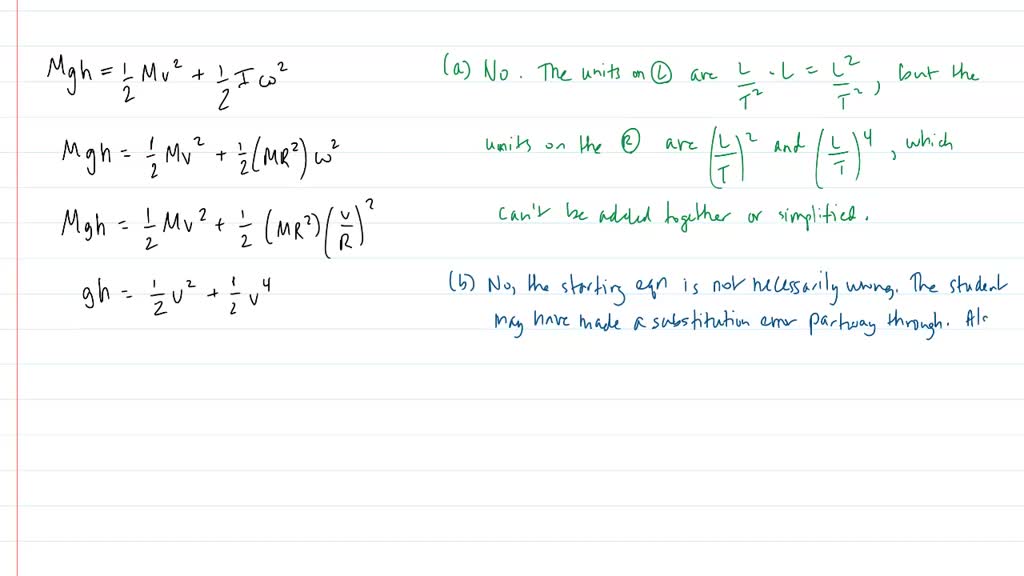 Mgh = 1/2 Mv² + 1/2 I ω²
Mgh = 1/2 Mv² + 1/2 (MR²) ω²
Mgh = 1/2 Mv² + 1/2 (MR²) (v/R)²
gh = 1/2 v² + 1/2 v⁴
(a) No. The units on Ⓛ are L/T² · L = L²/T², but the
units on the Ⓡ are (L/T)² and (L/T)⁴, which
can't be added together or simplified.
(b) No, the starting eqn is not necessarily wrong. The student
may have made a substitution error partway through. Al